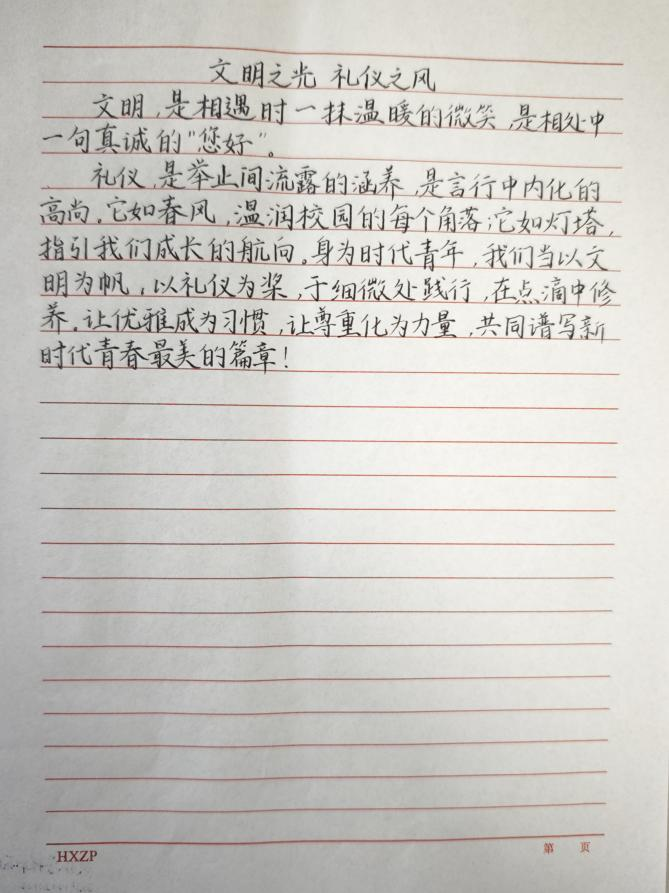 文明之光 礼仪之风
文明，是相遇时一抹温暖的微笑，是相处中
一句真诚的“您好”。
礼仪，是举止间流露的涵养，是言行中内化的
高尚。它如春风，温润校园的每个角落；它如灯塔，
指引我们成长的航向。身为时代青年，我们当以文
明为帆，以礼仪为桨，于细微处践行，在点滴中修
养。让优雅成为习惯，让尊重化为力量，共同谱写新
时代青春最美的篇章！
HXZP
第 页